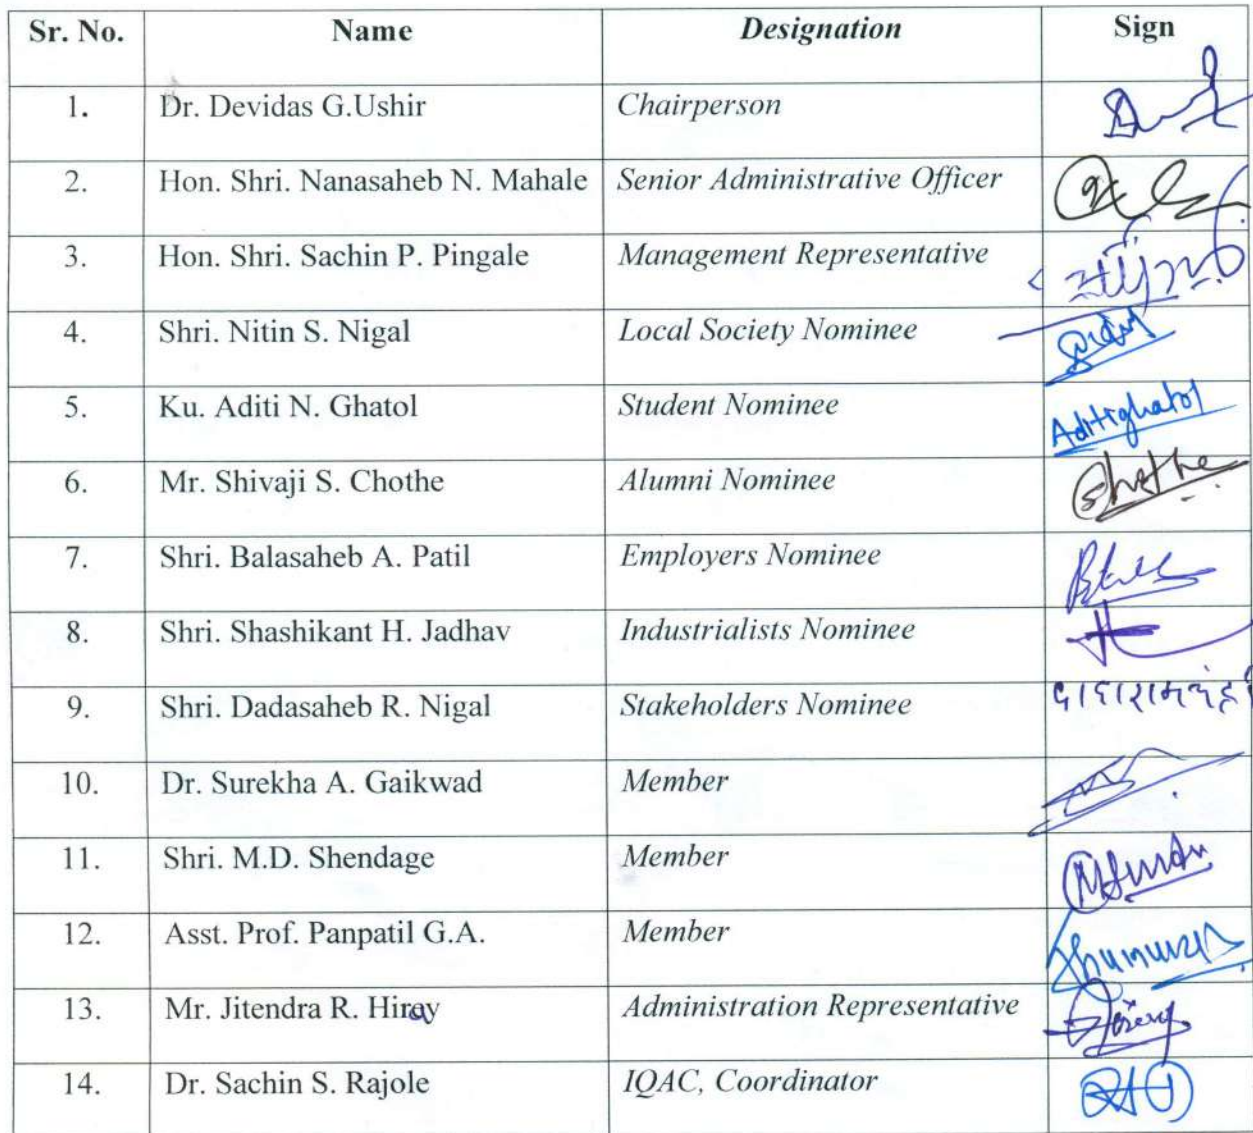 Sr. No. Name Designation Sign
1. Dr. Devidas G.Ushir Chairperson
2. Hon. Shri. Nanasaheb N. Mahale Senior Administrative Officer
3. Hon. Shri. Sachin P. Pingale Management Representative
4. Shri. Nitin S. Nigal Local Society Nominee
5. Ku. Aditi N. Ghatol Student Nominee Aditighatol
6. Mr. Shivaji S. Chothe Alumni Nominee
7. Shri. Balasaheb A. Patil Employers Nominee
8. Shri. Shashikant H. Jadhav Industrialists Nominee
9. Shri. Dadasaheb R. Nigal Stakeholders Nominee
10. Dr. Surekha A. Gaikwad Member
11. Shri. M.D. Shendage Member
12. Asst. Prof. Panpatil G.A. Member
13. Mr. Jitendra R. Hiray Administration Representative
14. Dr. Sachin S. Rajole IQAC, Coordinator